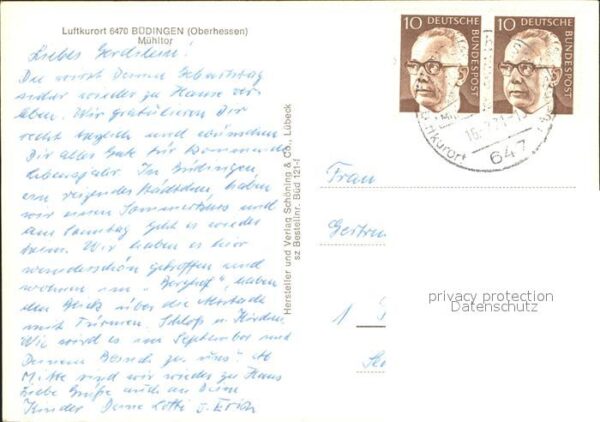 Luftkurort 6470 BÜDINGEN (Oberhessen)
Mühltor
Liebes Gerdchen!
Du wirst Deinen Geburtstag
sicher wieder zu Hause ver
leben. Wir gratulieren Dir
recht herzlich und wünschen
Dir alles Gute für kommendes
Lebensjahr. In Büdingen,
ein reizendes Städtchen, haben
wir einen Sommerkurs und
am Sonntag geht es wieder
heim. Wir haben es hier
wunderschön getroffen und
wohnen im "Berghof", haben
den Blick über die Altstadt
mit Türmen, Schloß u. Kirchen.
Wie wird es im September und
Deinem Besuch zu uns? Ab
Mitte sind wir wieder zu Haus
Liebe Grüße auch an Deine
Kinder Deine Lotti u. Erich
Hersteller und Verlag Schöning & Co., Lübeck
sz Bestellnr. Büd 121-f
10 DEUTSCHE BUNDESPOST
10 DEUTSCHE BUNDESPOST
Luftkurort
647
Frau
Gertru
1
privacy protection
Datenschutz